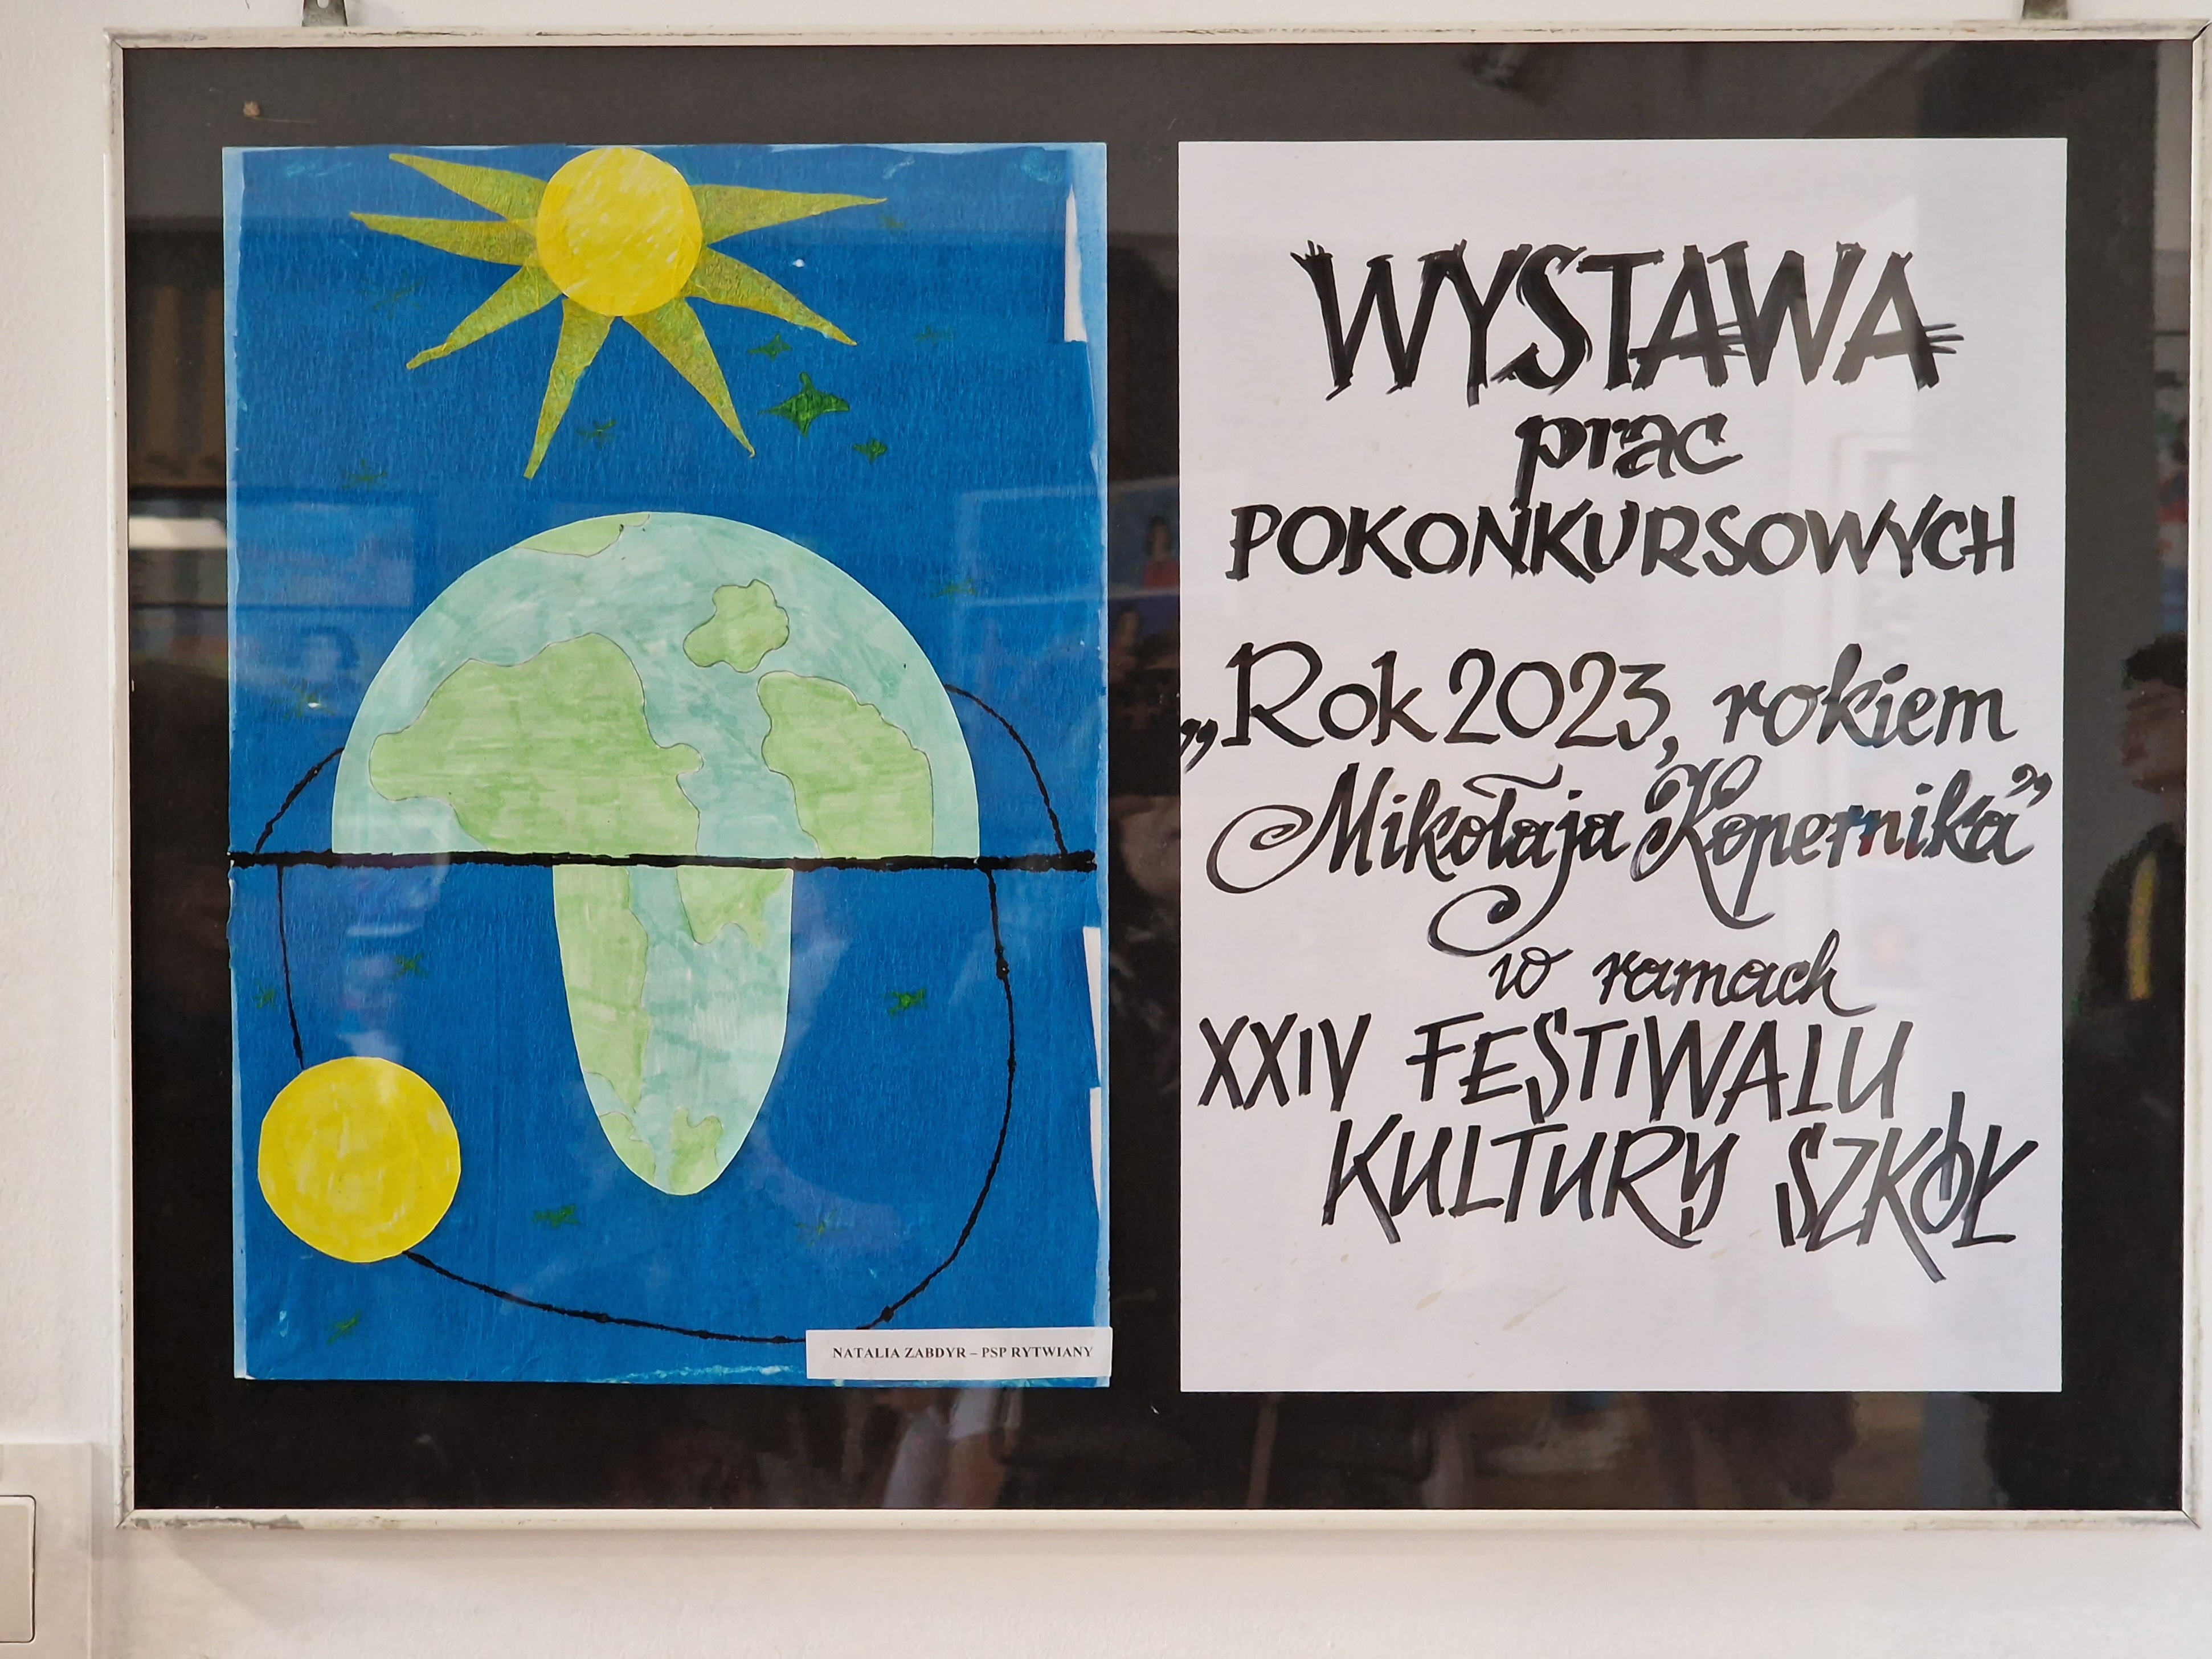 NATALIA ZABDYR – PSP RYTWIANY
WYSTAWA
prac
POKONKURSOWYCH
„Rok 2023, rokiem
Mikołaja Kopernika”
w ramach
XXIV FESTIWALU
KULTURY SZKÓŁ